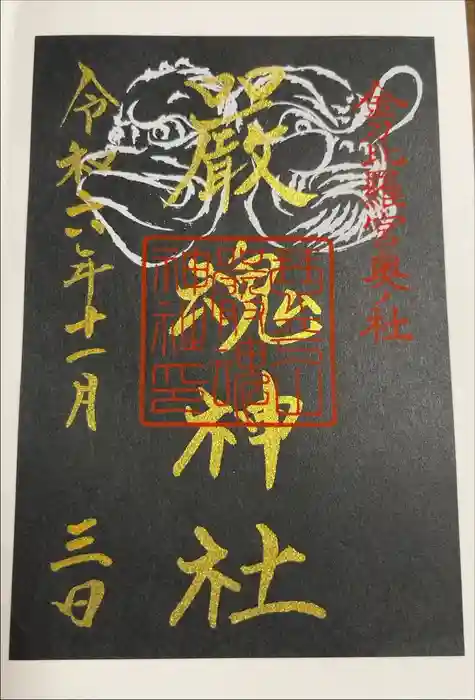 金刀比羅宮奥ノ社
嚴魂神社
令和六年十一月
三日